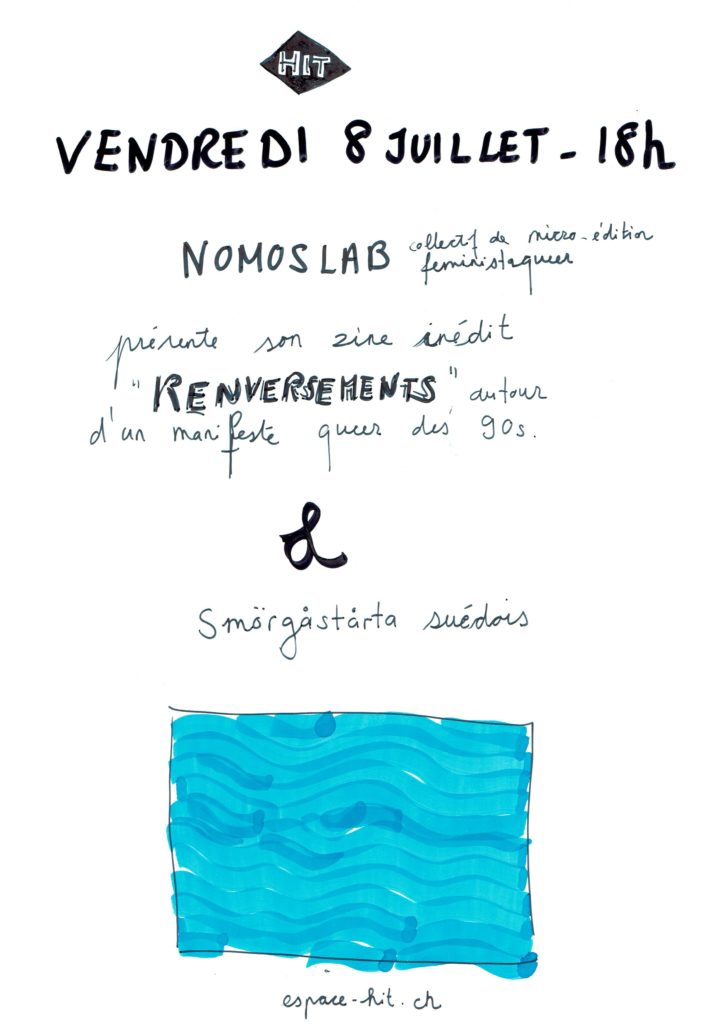 HIT
VENDREDI 8 JUILLET - 18h
NOMOSLAB collectif de micro-édition
feministaqueer
présente son zine inédit
"RENVERSEMENTS" autour
d'un manifeste queer des 90s.
&
Smörgåstårta suédois
espace-hit.ch